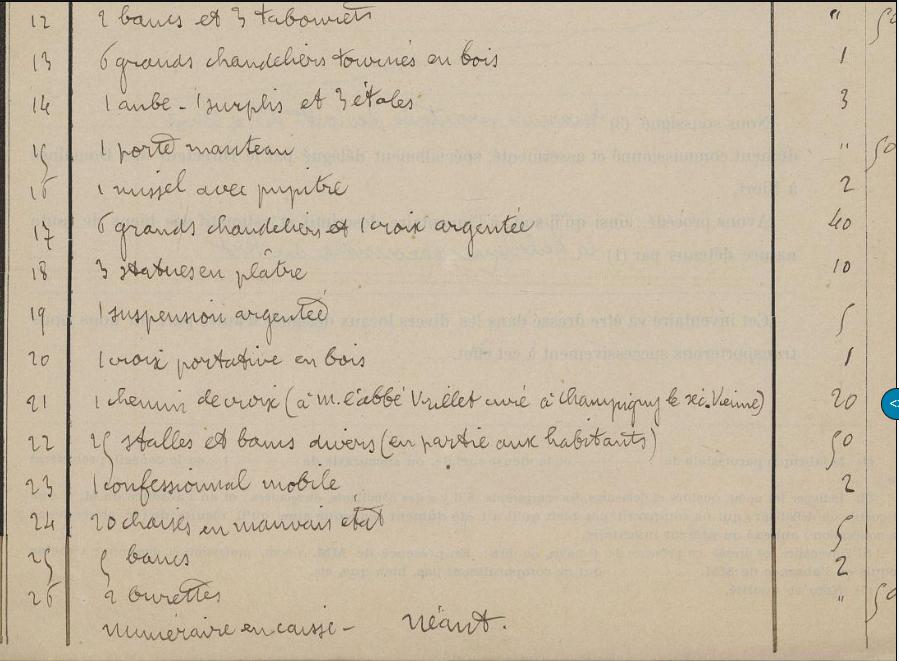 12 2 bancs et 3 tabourets " 50
13 6 grands chandeliers tournés en bois 1
14 1 aube - 1 surplis et 3 étoles 3
15 1 porte manteau " 50
16 1 missel avec pupitre 2
17 6 grands chandeliers et 1 croix argentée 40
18 3 statues en plâtre 10
19 1 suspension argentée 5
20 1 croix portative en bois 1
21 1 chemin de croix (à M. l'abbé curé à Champigny le sec. Vienne) 20
22 25 stalles et bancs divers (en partie aux habitants) 50
23 1 confessionnal mobile 2
24 20 chaises en mauvais état 5
25 5 bancs 2
26 2 burettes " 50
Numéraire en caisse - Néant.